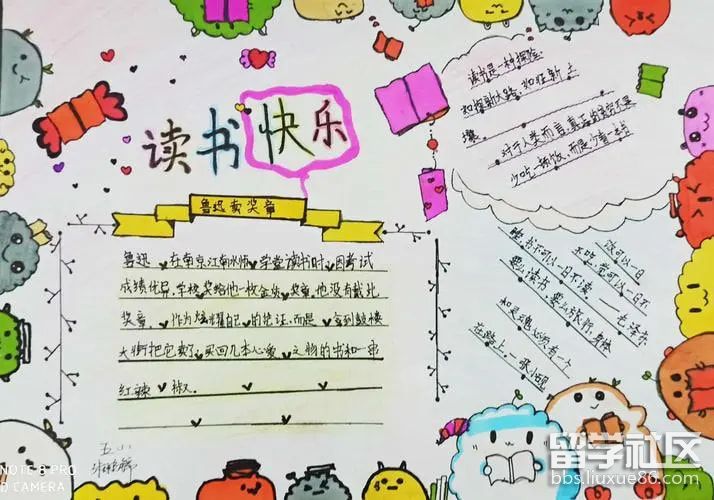 读书快乐
鲁迅卖奖章
鲁迅在南京江南水师学堂读书时,因考试
成绩优异,学校奖给他一枚金质奖章,他没有戴此
奖章,作为炫耀自己的凭证,而是拿到鼓楼
大街把它卖了,买回几本心爱的书和一串
红辣椒.
读书是一种探险,
如探新大陆,如征新土
壤
对于人类而言,真正的
少吃一顿饭,而是少看一本书
饭可以一日
不吃,觉可以一日不
睡,书不可以一日不读 —毛泽东
要么读书,要么旅行,身体
和灵魂必须有一个
在路上.
五
NOTE 8 PRO
D CAMERA
留学社区
bbs.liuxue86.com